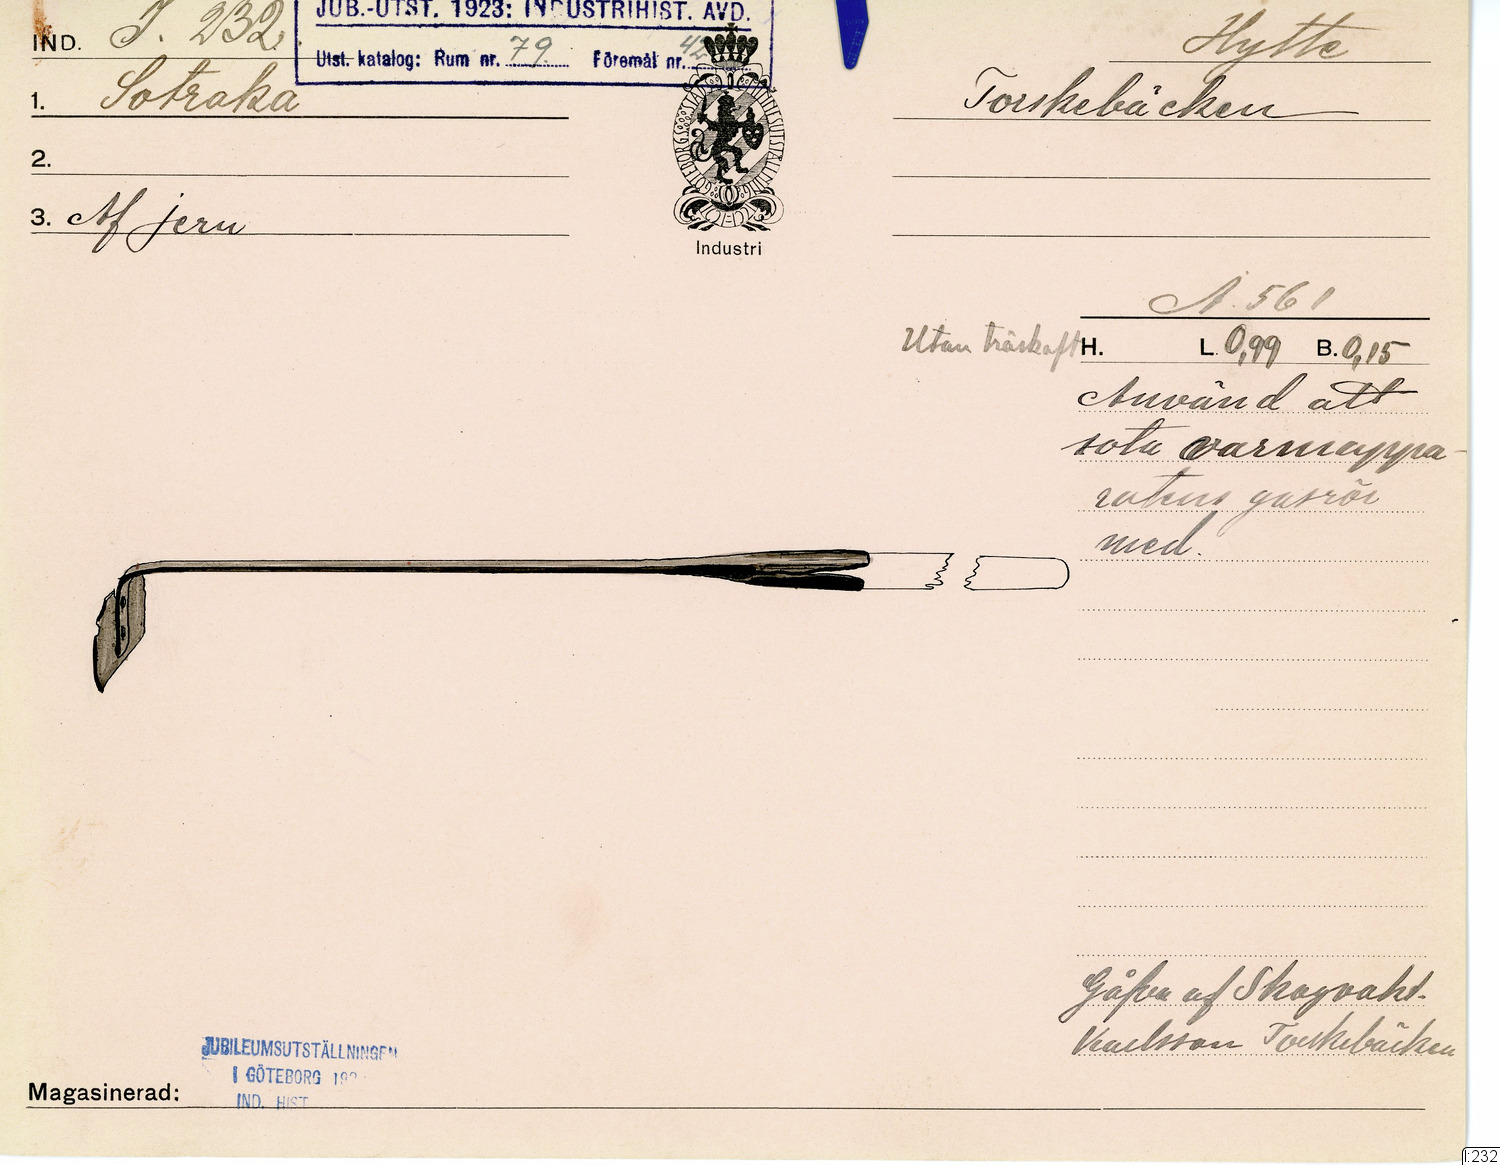 JUB.-UTST. 1923: INDUSTRIHIST. AVD.
Utst. katalog: Rum nr. 79 Föremål nr. 42
IND. I. 232
1. Sotraka
2.
3. Af jern
GÖTEBORGS STADS MINNESUTSTÄLLNING
Industri
Hytte
Torskebäcken
A. 561
Utan träskaft H. L. 0,99 B. 0,15
Använd att
sota varmappa-
ratens gasrör
med.
Gåfva af Skogvakt.
Karlsson Torskebäcken
JUBILEUMSUTSTÄLLNINGEN
I GÖTEBORG 192
IND. HIST
Magasinerad:
I:232